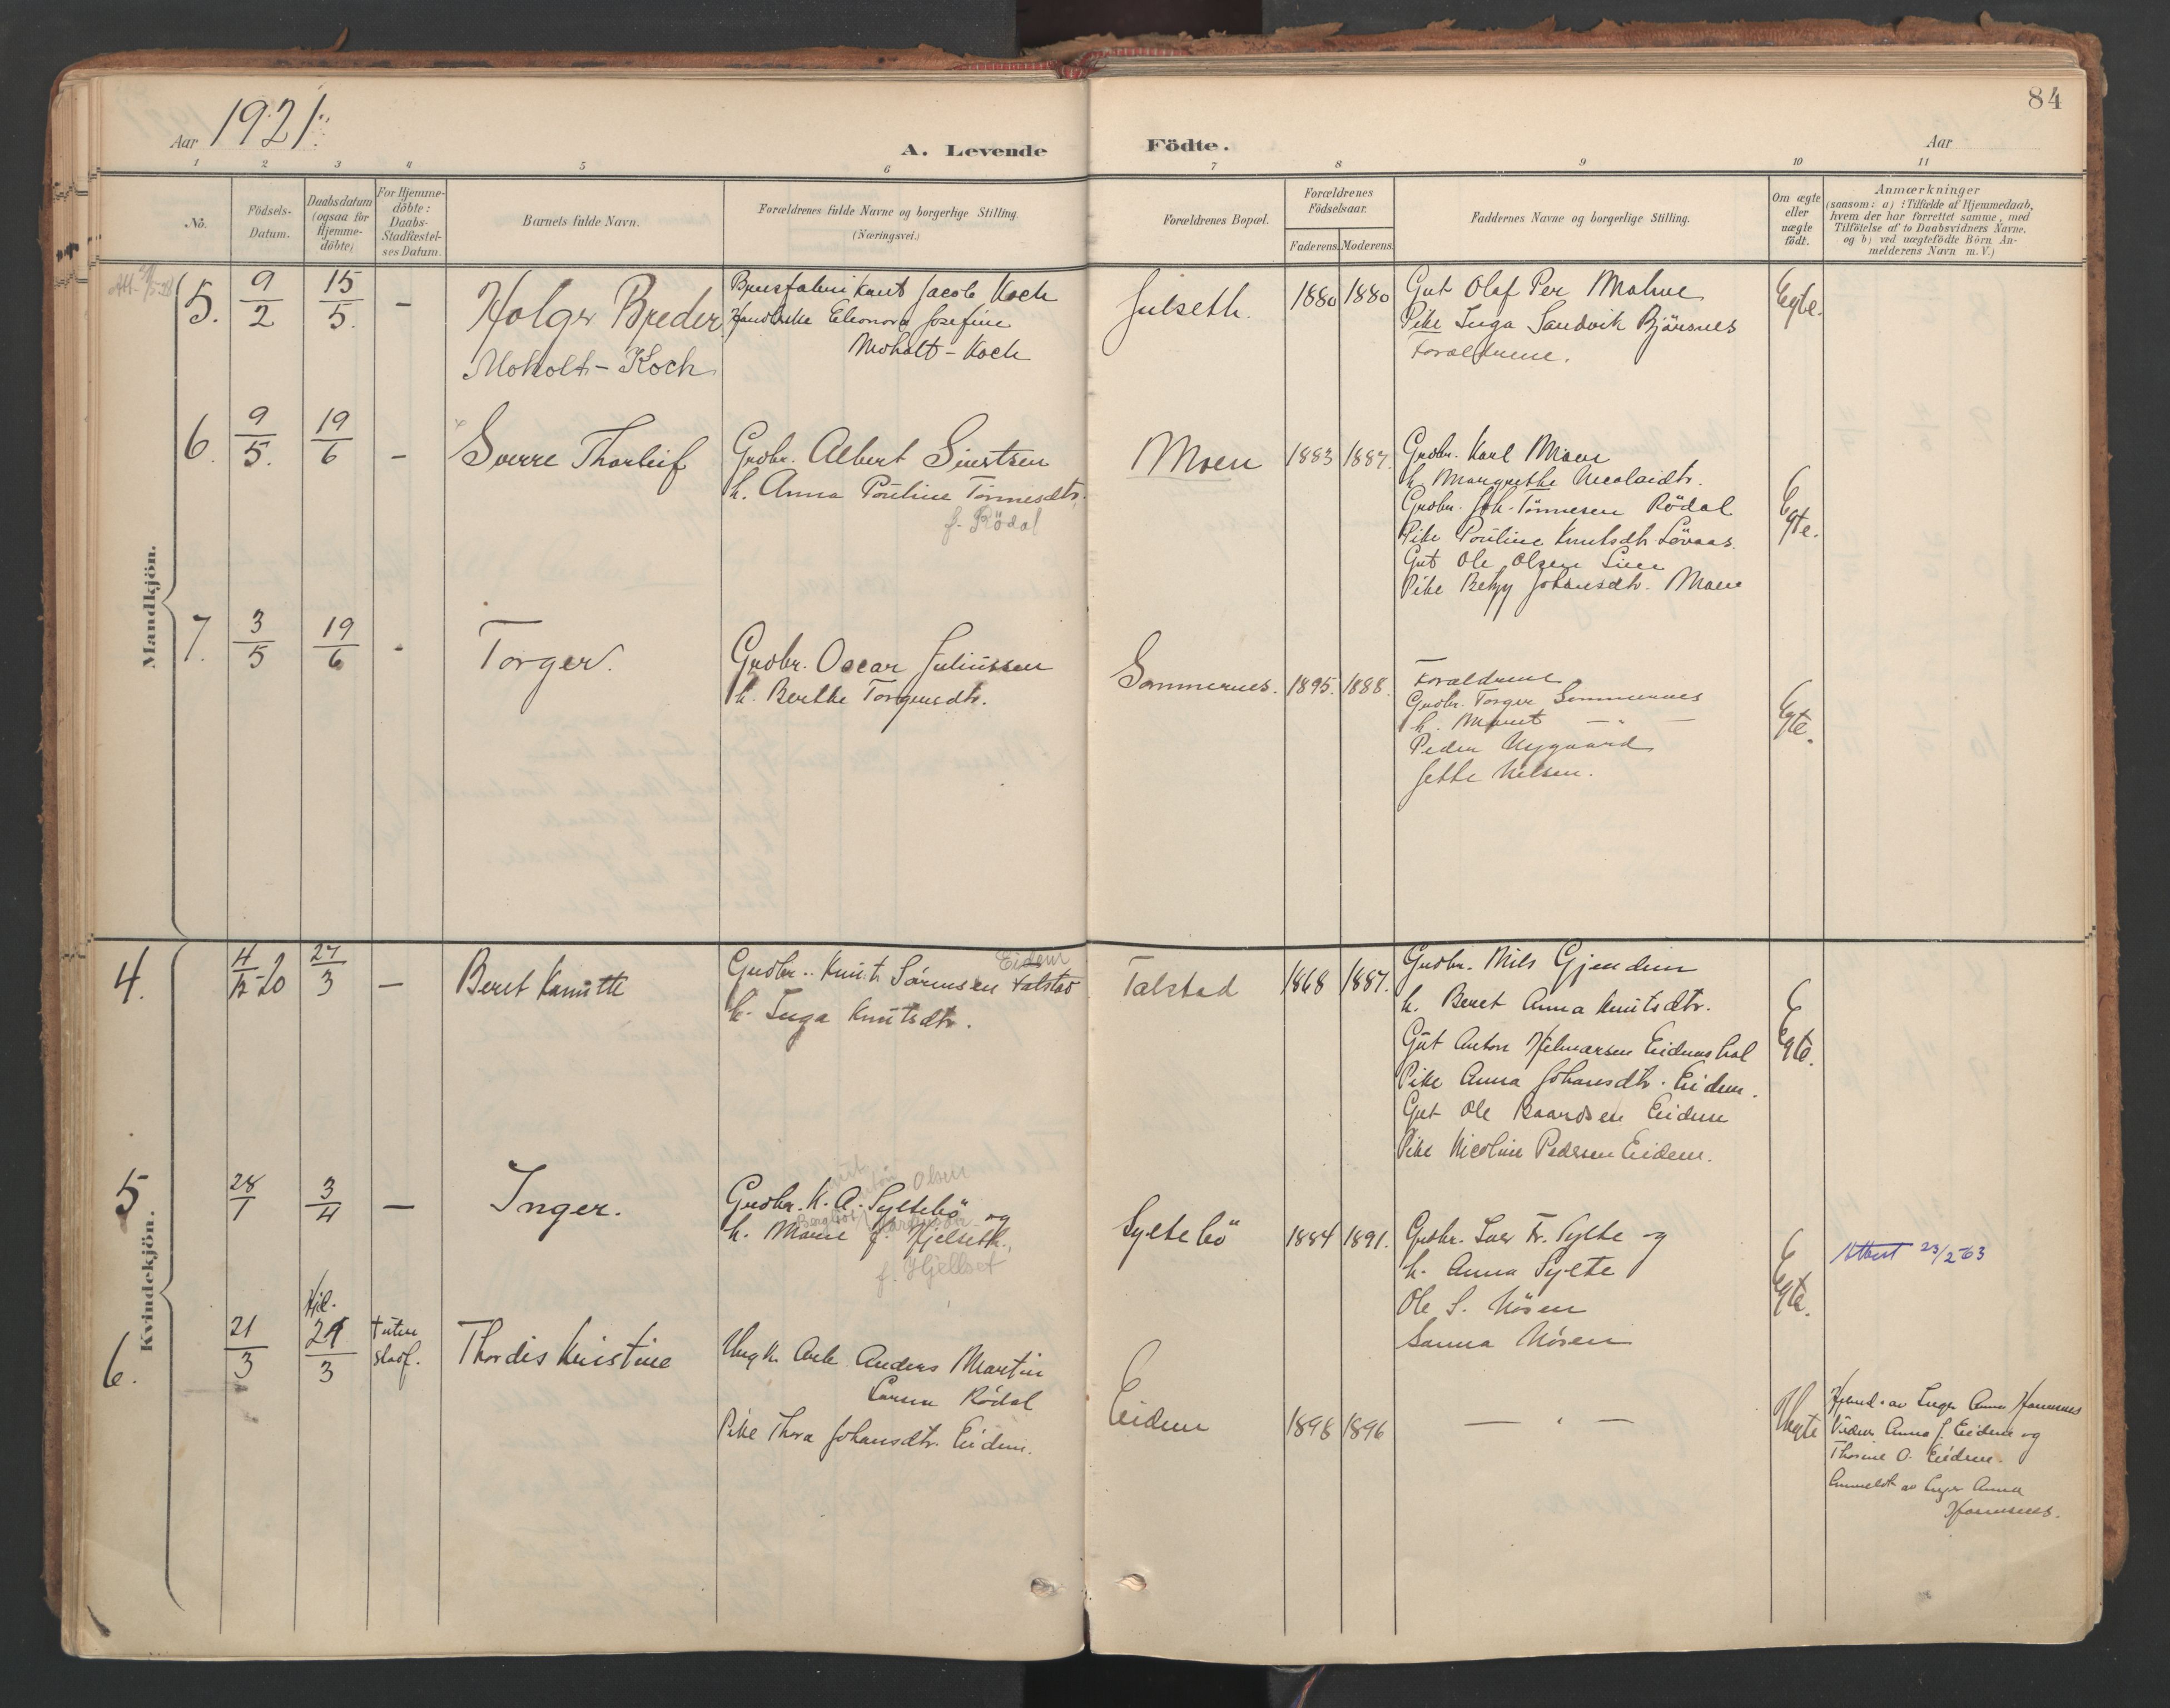 84
Aar 1921.
A. Levende
Födte.
Aar
1 2 3 4 5 6 7 8 9 10 11
No.
Födsels-
Datum.
Daabsdatum
(ogsaa for
Hjemme-
döbte)
For Hjemme-
döbte:
Daabs-
Stadfestel-
ses Datum.
Barnets fulde Navn.
Forældrenes fulde Navne og borgerlige Stilling.
(Næringsvei.)
Forældrenes Bopæl.
Forældrenes
Födselsaar.
Faderens. Moderens.
Faddernes Navne og borgerlige Stilling.
Om ægte
eller
uægte
födt.
Anmærkninger
(saasom: a) i Tilfælde af Hjemmedaab,
hvem der har forrettet samme, med
Tilföielse af to Daabsvidners Navne.
og b) ved uægtefödte Börn An-
melderens Navn m.V.)
Mandkjön.
5. 9/2 15/5. –
Holger Breder
Moholt-Koch
Brusfabrikant Jacob Koch
Eleonora Josefine
Moholt-Koch
Julseth.
1880 1880
Gut Olaf Per Malme
Pike Inga Sandvik Bjørsnes
Forældrene.
Egte.
6. 9/5. 19/6 –
Sverre Thorleif
Grdbr. Albert Siversen
h. Anna Pauline Tønnesdtr.
f. Rödal
Moen
1883 1887.
Grdbr. Karl Moen
h. Margrethe Nicolaidtr.
Grdbr. Joh. Tönnesen Rödal
Pike Pauline Knutsdtr. Lövaas.
Gut Ole Olsen Lien
Pike Betzy Johansdtr. Moen
Egte.
7. 3/5 19/6 -
Torger.
Grdbr. Oscar Juliussen
h. Berthe Torgersdtr.
Sommernes.
1895. 1888.
Forældrene
Grdbr. Torger Sommernes
h. Marit — " —
Peder Nygaard
Jette Nilsen.
Egte.
Kvindekjön.
4. 4/12-20 27/3 —
Beret Kanutte
Eidem
Grdbr. Knut Sörensen Talstad
h. Inga Knutsdtr.
Talstad
1868 1887.
Grdbr. Nils Gjendem
h. Beret Anna Knutsdtr.
Gut Anton Hilmarsen Eidemshal
Pike Anna Johansdtr. Eidem.
Gut Ole Baardsen Eidem
Pike Nicoline Pedersen Eidem.
Egte.
5 28/1 3/4 —
Inger.
Olsen
Grdbr. K. A. Syltebö og
h. Marie f. Hjelseth.
f. Hjellset
Syltebö
1884 1891.
Grdbr. Iver Fr. Sylte og
h. Anna Sylte
Ole S. Nösen
Sanna Nösen
Egte.
Attest 23/2-63
6. 21/3 Hjd. 24/3
stadf.
Thordis Kristine
Ungk. Arb. Anders Martin
Rödal
Pike Thora Johansdtr. Eidem.
Eidem
1898 1896
— " —
Uegte
Hjemd. av Inger Anna Hammnes
Vidner Anna J. Eidem og
Thorine O. Eidem.
Anmeldt av Inger Anna
Hammnes.